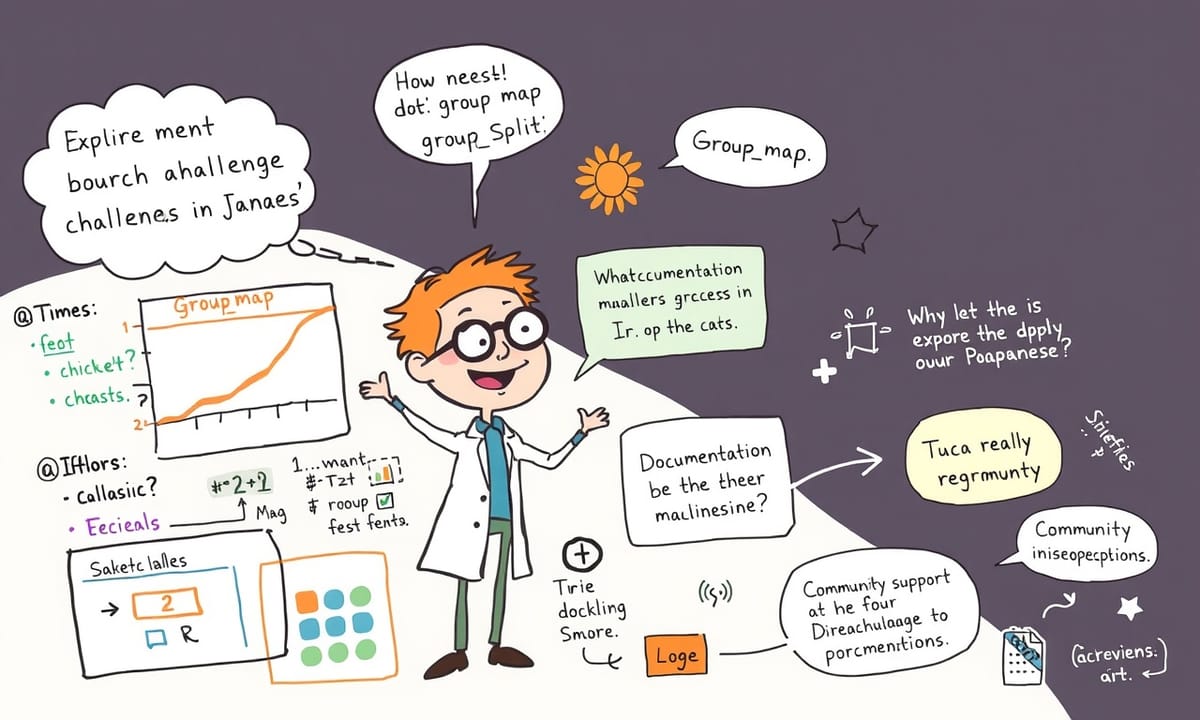 How neest!
dot: group map
group_Split:
Explire ment
bourch ahallenge
challenes in Janaes'
Group_map.
Whatccumentation
muallers grccess in
Ir. op the cats.
@Times:
• feot
• chicket?
• chcasts. ?
Group map
1
2
Why let the is
expore the dpply,
ouur Poapanese?
Documentation
be the theer
maclinesine?
Tuca really
regrmunty
@Ifflors:
• Callasiic?
• Eecieals
#•2+2
Mag
1...want
#-Tzt
‡ rooup
fest fents.
Saketc lalles
→ 2
R
Tirie
dockling
Smore.
Loge
Community support
at he four
Direachulaage to
porcmenitions.
Community
iniseopecptions.
(acreviens.
art.